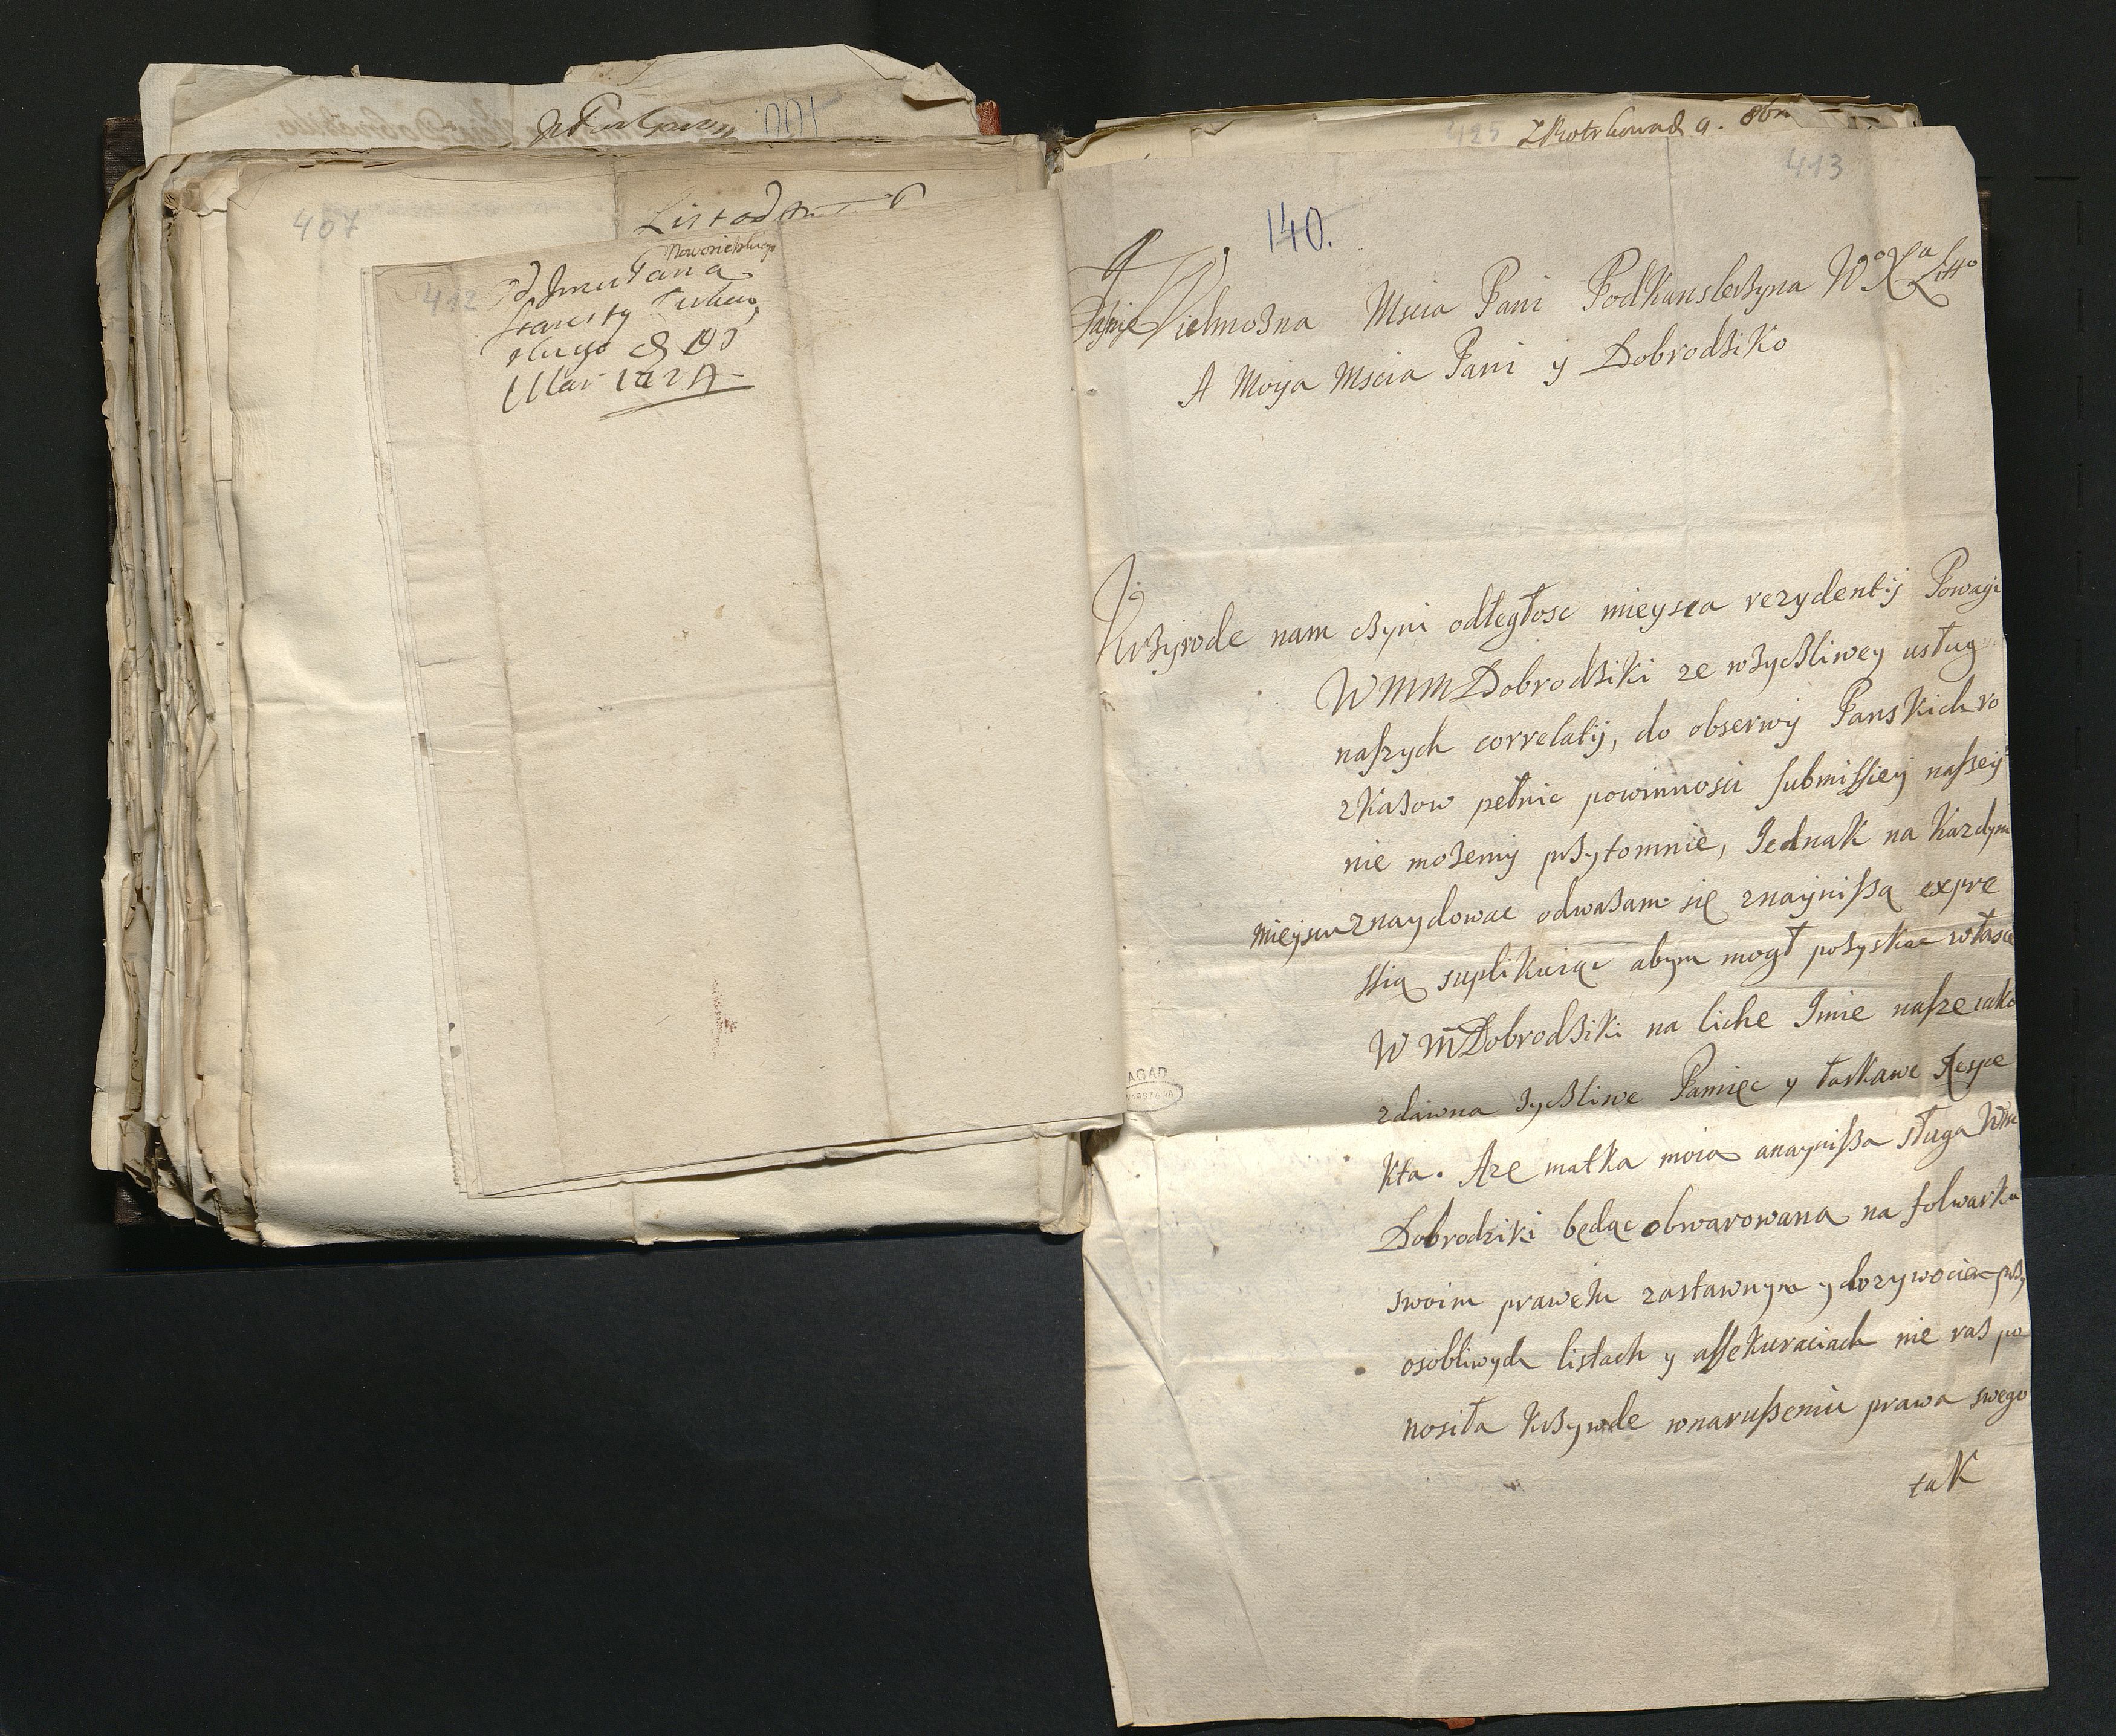 407
412
List od
Nowosielskiego
Starosty
413
425
140.
Jaśnie Wielmożna Mscia Pani Podkanslerzyna W° X^a Litt°
A Moyja Mscia Pani y Dobrodziko
Krzywde nam czyni odległosc mieysca rezydentij Powagi
WMM Dobrodziki ze wżyczliwey usług
naszych correlatij, do obserwij Panskich ro
zkazow pełnic powinnosci submissiey naszey
nie możemy przytomnie, Jednak na każdym
mieyscu znaydowac odważam się znayniszą expre
ssią suplikuiąc abym mogł pozyskac własce
W M Dobrodziki na liche Imie nasze iako
zdawna życzliwe Pamięc y łaskawe Respe
kta. Aze matka moia anaynisza sługa Wm
Dobrodziki będąc obwarowana na folwarku
swoim prawem zastawnym y dozywociem przy
osobliwych listach y assekuraciach nie raz po
nosiła krzywde wnaruszeniu prawa swego
tak
AGAD